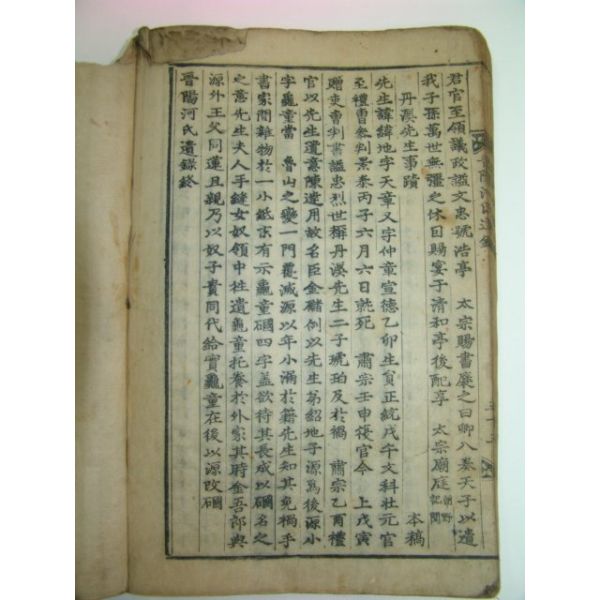 君官至領議政謚文忠號浩亭 太宗賜書簾之曰卿八奏天子以遺
我子孫萬世無疆之休因賜宴于清和亭後配享 太宗廟庭 朝野記聞
本稿
丹溪先生事蹟
先生諱緯地字天章又字仲章宣德乙卯生員正統戊午文科壯元官
至禮曹參判景泰丙子六月六日就死 肅宗壬申復官今 上戊寅
贈吏曹判書謚忠烈世稱丹溪先生二子琥珀及於禍 肅宗乙酉禮
官以先生遺意陳達用故名臣金 例以先生弟紹地子源爲後源小
字龜童當 魯山之變一門覆滅源以年小漏於籍先生知其免禍手
書家間雜物於一小紙末有示龜童碙四字盖欲待其長成以碙名之
之意先生夫人手縫女奴領中 遺龜童托養於外家其時金吾郎與
源外王父同蓮且親乃以奴子貴同代給實龜童在後以源改碙
晋陽河氏遺錄終
晋陽河氏遺錄